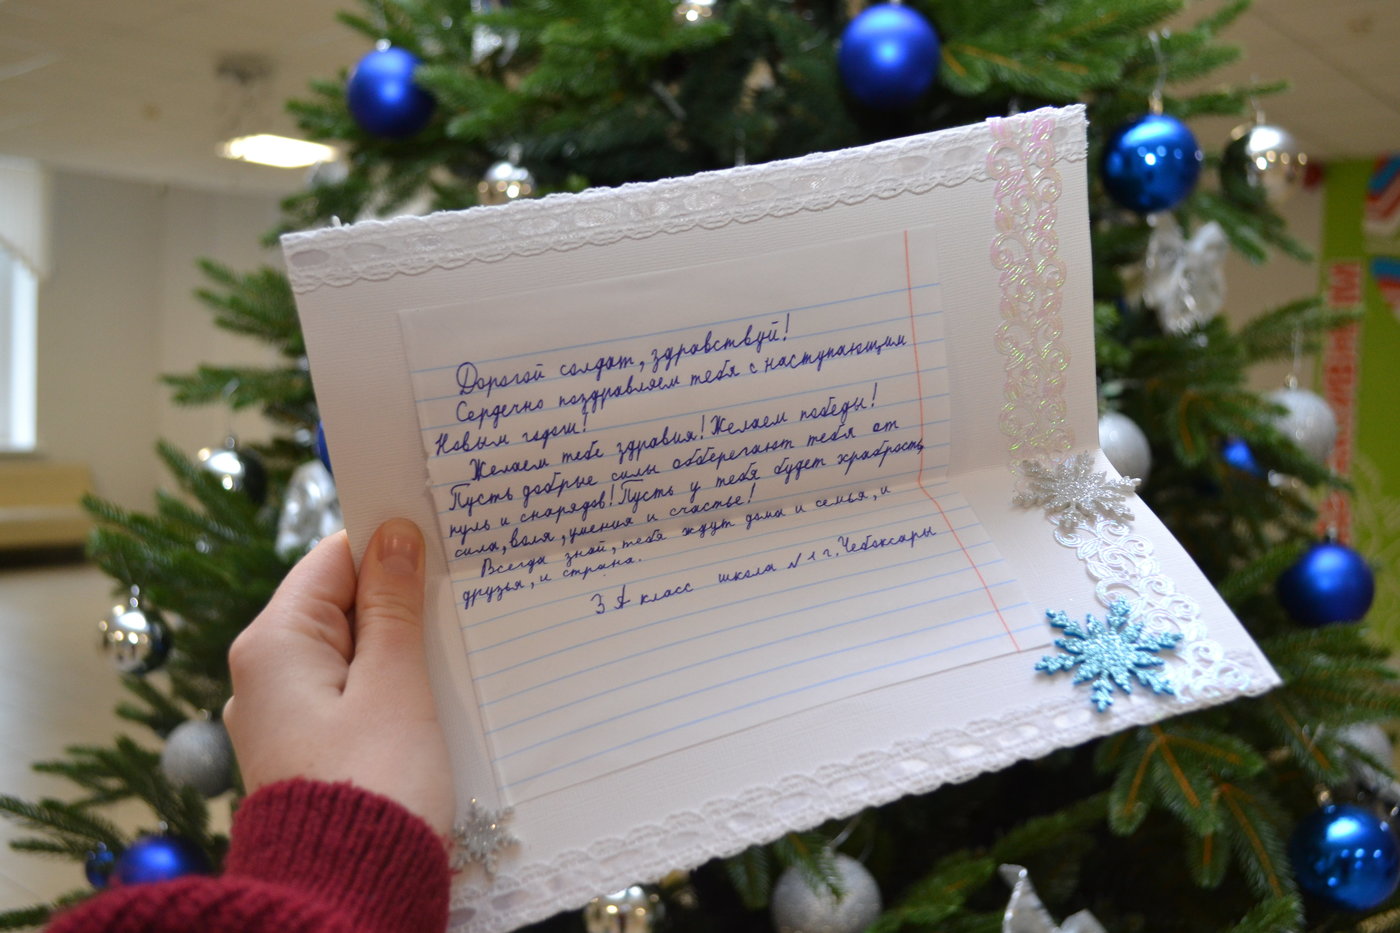 Дорогой солдат, здравствуй!
Сердечно поздравляем тебя с наступающим
Новым годом!
Желаем тебе здравия! Желаем победы!
Пусть добрые силы обберегают тебя от
пуль и снарядов! Пусть у тебя будет храбрость,
сила, воля, умения и счастье!
Всегда знай, тебя ждут дома и семья, и
друзья, и страна.
3 А класс школа №1 г. Чебоксары